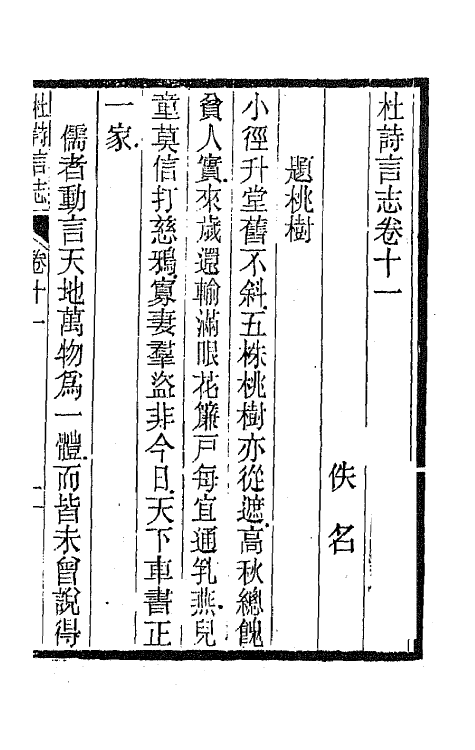 杜詩言志卷十一
佚名
題桃樹
小徑升堂舊不斜.五株桃樹亦從遮.高秋總餽
貧人實.來歲還輸滿眼花.簾戸每宜通乳燕.兒
童莫信打慈鴉.寡妻羣盜非今日.天下車書正
一家.
儒者動言天地萬物爲一體.而皆未曾說得
杜詩言志 卷十一